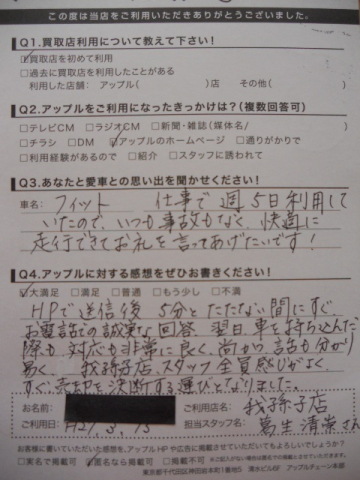 この度は当店をご利用いただきありがとうございました。
Q1.買取店利用について教えて下さい!
☑買取店を初めて利用
□過去に買取店を利用したことがある
利用した店舗: アップル( )店 その他( )
Q2.アップルをご利用になったきっかけは?(複数回答可)
□テレビCM □ラジオCM □新聞・雑誌(媒体名/ )
□チラシ □DM ☑アップルのホームページ □通りがかりで
□利用経験があるので □紹介 □スタッフに誘われて
Q3.あなたと愛車との思い出を聞かせください!
車名: フィット 仕事で週5日利用して
いたので、いつも事故もなく、快適に
走行できてお礼を言ってあげたいです!
Q4.アップルに対する感想をぜひお書きください!
☑大満足 □満足 □普通 □もう少し □不満
HPで送信後 5分とたたない間にすぐ
お電話での誠実な回答 翌日車を持ち込んだ
際も対応も非常に良く、尚かつ話も分かり
易く、我孫子店、スタッフ全員感じがよく
すぐ売却を決断する運びとなりました。
お名前: ご利用店名: 我孫子店
ご利用日: H27.3.15 担当スタッフ名: 葛生 清崇さん
お客様に書いていただいた感想を、アップルHPや広告に掲載させていただいてもよろしいでしょうか?
□実名で掲載可 ☑匿名なら掲載可 □掲載不可
東京都千代田区神田前本町1番地5 清水ビル6F アップルチェーン本部